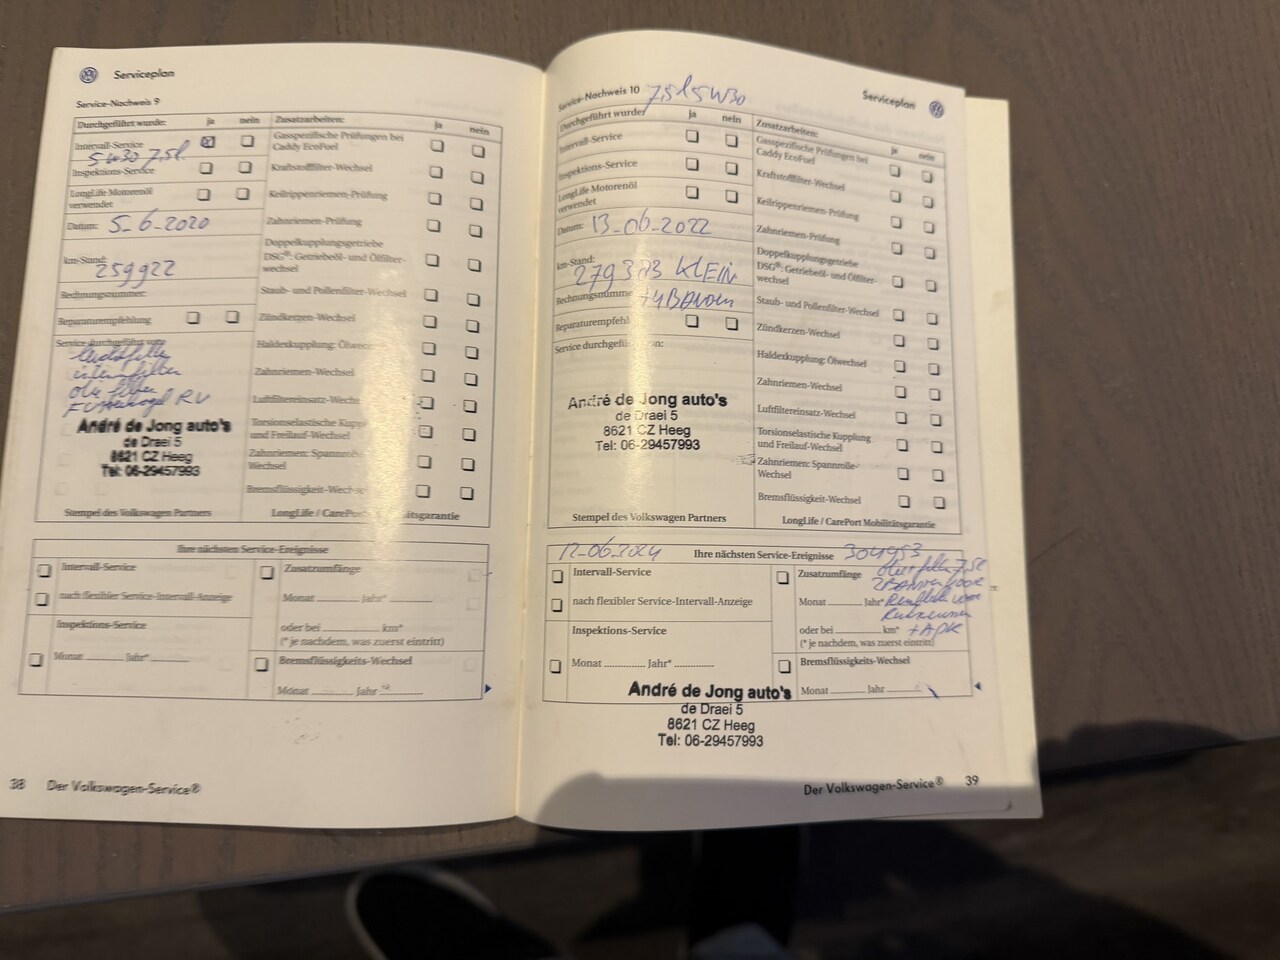 Serviceplan
Service-Nachweis 9
Durchgeführt wurde: ja nein
Intervall-Service
5W30 7,5l.
Inspektions-Service
LongLife Motorenöl verwendet
Datum: 5-6-2020
km-Stand:
259922
Rechnungsnummer:
Reparaturempfehlung
Service durchgeführt von:
olie filter
André de Jong auto's
de Draei 5
8621 CZ Heeg
Tel: 06-29457993
Stempel des Volkswagen Partners
Zusatzarbeiten: ja nein
Gasspezifische Prüfungen bei
Caddy EcoFuel
Kraftstofffilter-Wechsel
Keilrippenriemen-Prüfung
Zahnriemen-Prüfung
Doppelkupplungsgetriebe
DSG®: Getriebeöl- und Ölfilter-
wechsel
Staub- und Pollenfilter-Wechsel
Zündkerzen-Wechsel
Haldexkupplung: Ölwechsel
Zahnriemen-Wechsel
Luftfiltereinsatz-Wechsel
Torsionselastische Kupplung
und Freilauf-Wechsel
Zahnriemen: Spannrolle-
Wechsel
Bremsflüssigkeit-Wechsel
LongLife / CarePort Mobilitätsgarantie
Ihre nächsten Service-Ereignisse
Intervall-Service
nach flexibler Service-Intervall-Anzeige
Inspektions-Service
Monat Jahr*
Zusatzumfänge
Monat Jahr*
oder bei km*
(* je nachdem, was zuerst eintritt)
Bremsflüssigkeits-Wechsel
Monat Jahr
38 Der Volkswagen-Service®
Serviceplan
Service-Nachweis 10 7,5l 5W30
Durchgeführt wurde: ja nein
Intervall-Service
Inspektions-Service
LongLife Motorenöl
verwendet
Datum: 13-06-2022
km-Stand:
KLEIN
Rechnungsnumme
Reparaturempfehl
Service durchgeführt von:
André de Jong auto's
de Draei 5
8621 CZ Heeg
Tel: 06-29457993
Stempel des Volkswagen Partners
Zusatzarbeiten: ja nein
Gasspezifische Prüfungen bei
Caddy EcoFuel
Kraftstofffilter-Wechsel
Keilrippenriemen-Prüfung
Zahnriemen-Prüfung
Doppelkupplungsgetriebe
DSG®: Getriebeöl- und Ölfilter-
wechsel
Staub- und Pollenfilter-Wechsel
Zündkerzen-Wechsel
Haldexkupplung: Ölwechsel
Zahnriemen-Wechsel
Luftfiltereinsatz-Wechsel
Torsionselastische Kupplung
und Freilauf-Wechsel
Zahnriemen: Spannrolle-
Wechsel
Bremsflüssigkeit-Wechsel
LongLife / CarePort Mobilitätsgarantie
12-06-2024 Ihre nächsten Service-Ereignisse 304953
Intervall-Service
nach flexibler Service-Intervall-Anzeige
Inspektions-Service
Monat Jahr*
Zusatzumfänge
Monat Jahr*
oder bei km* + APK
(* je nachdem, was zuerst eintritt)
Bremsflüssigkeits-Wechsel
Monat Jahr
André de Jong auto's
de Draei 5
8621 CZ Heeg
Tel: 06-29457993
Der Volkswagen-Service® 39